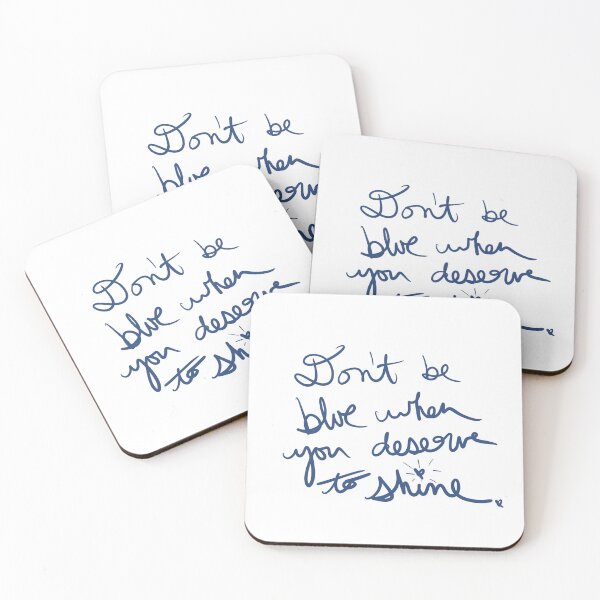 Don't be
blue when
deserve
Don't be
blue when
you deserve
to
Don't be
blue when
you deserve
to shine
Don't be
blue when
you deserve
to shine